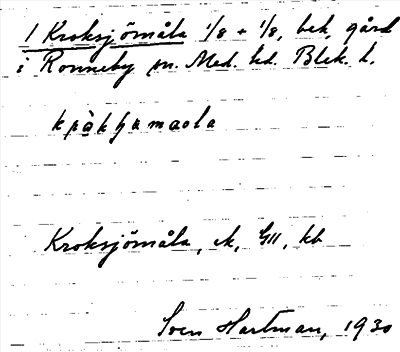 1 Kroksjömåla 1/8 + 1/8, bek. gård
i Ronneby sn. Med. hd. Blek. l.
Kroksjömåla, ek, GII, kb
Sven Hartman, 1930